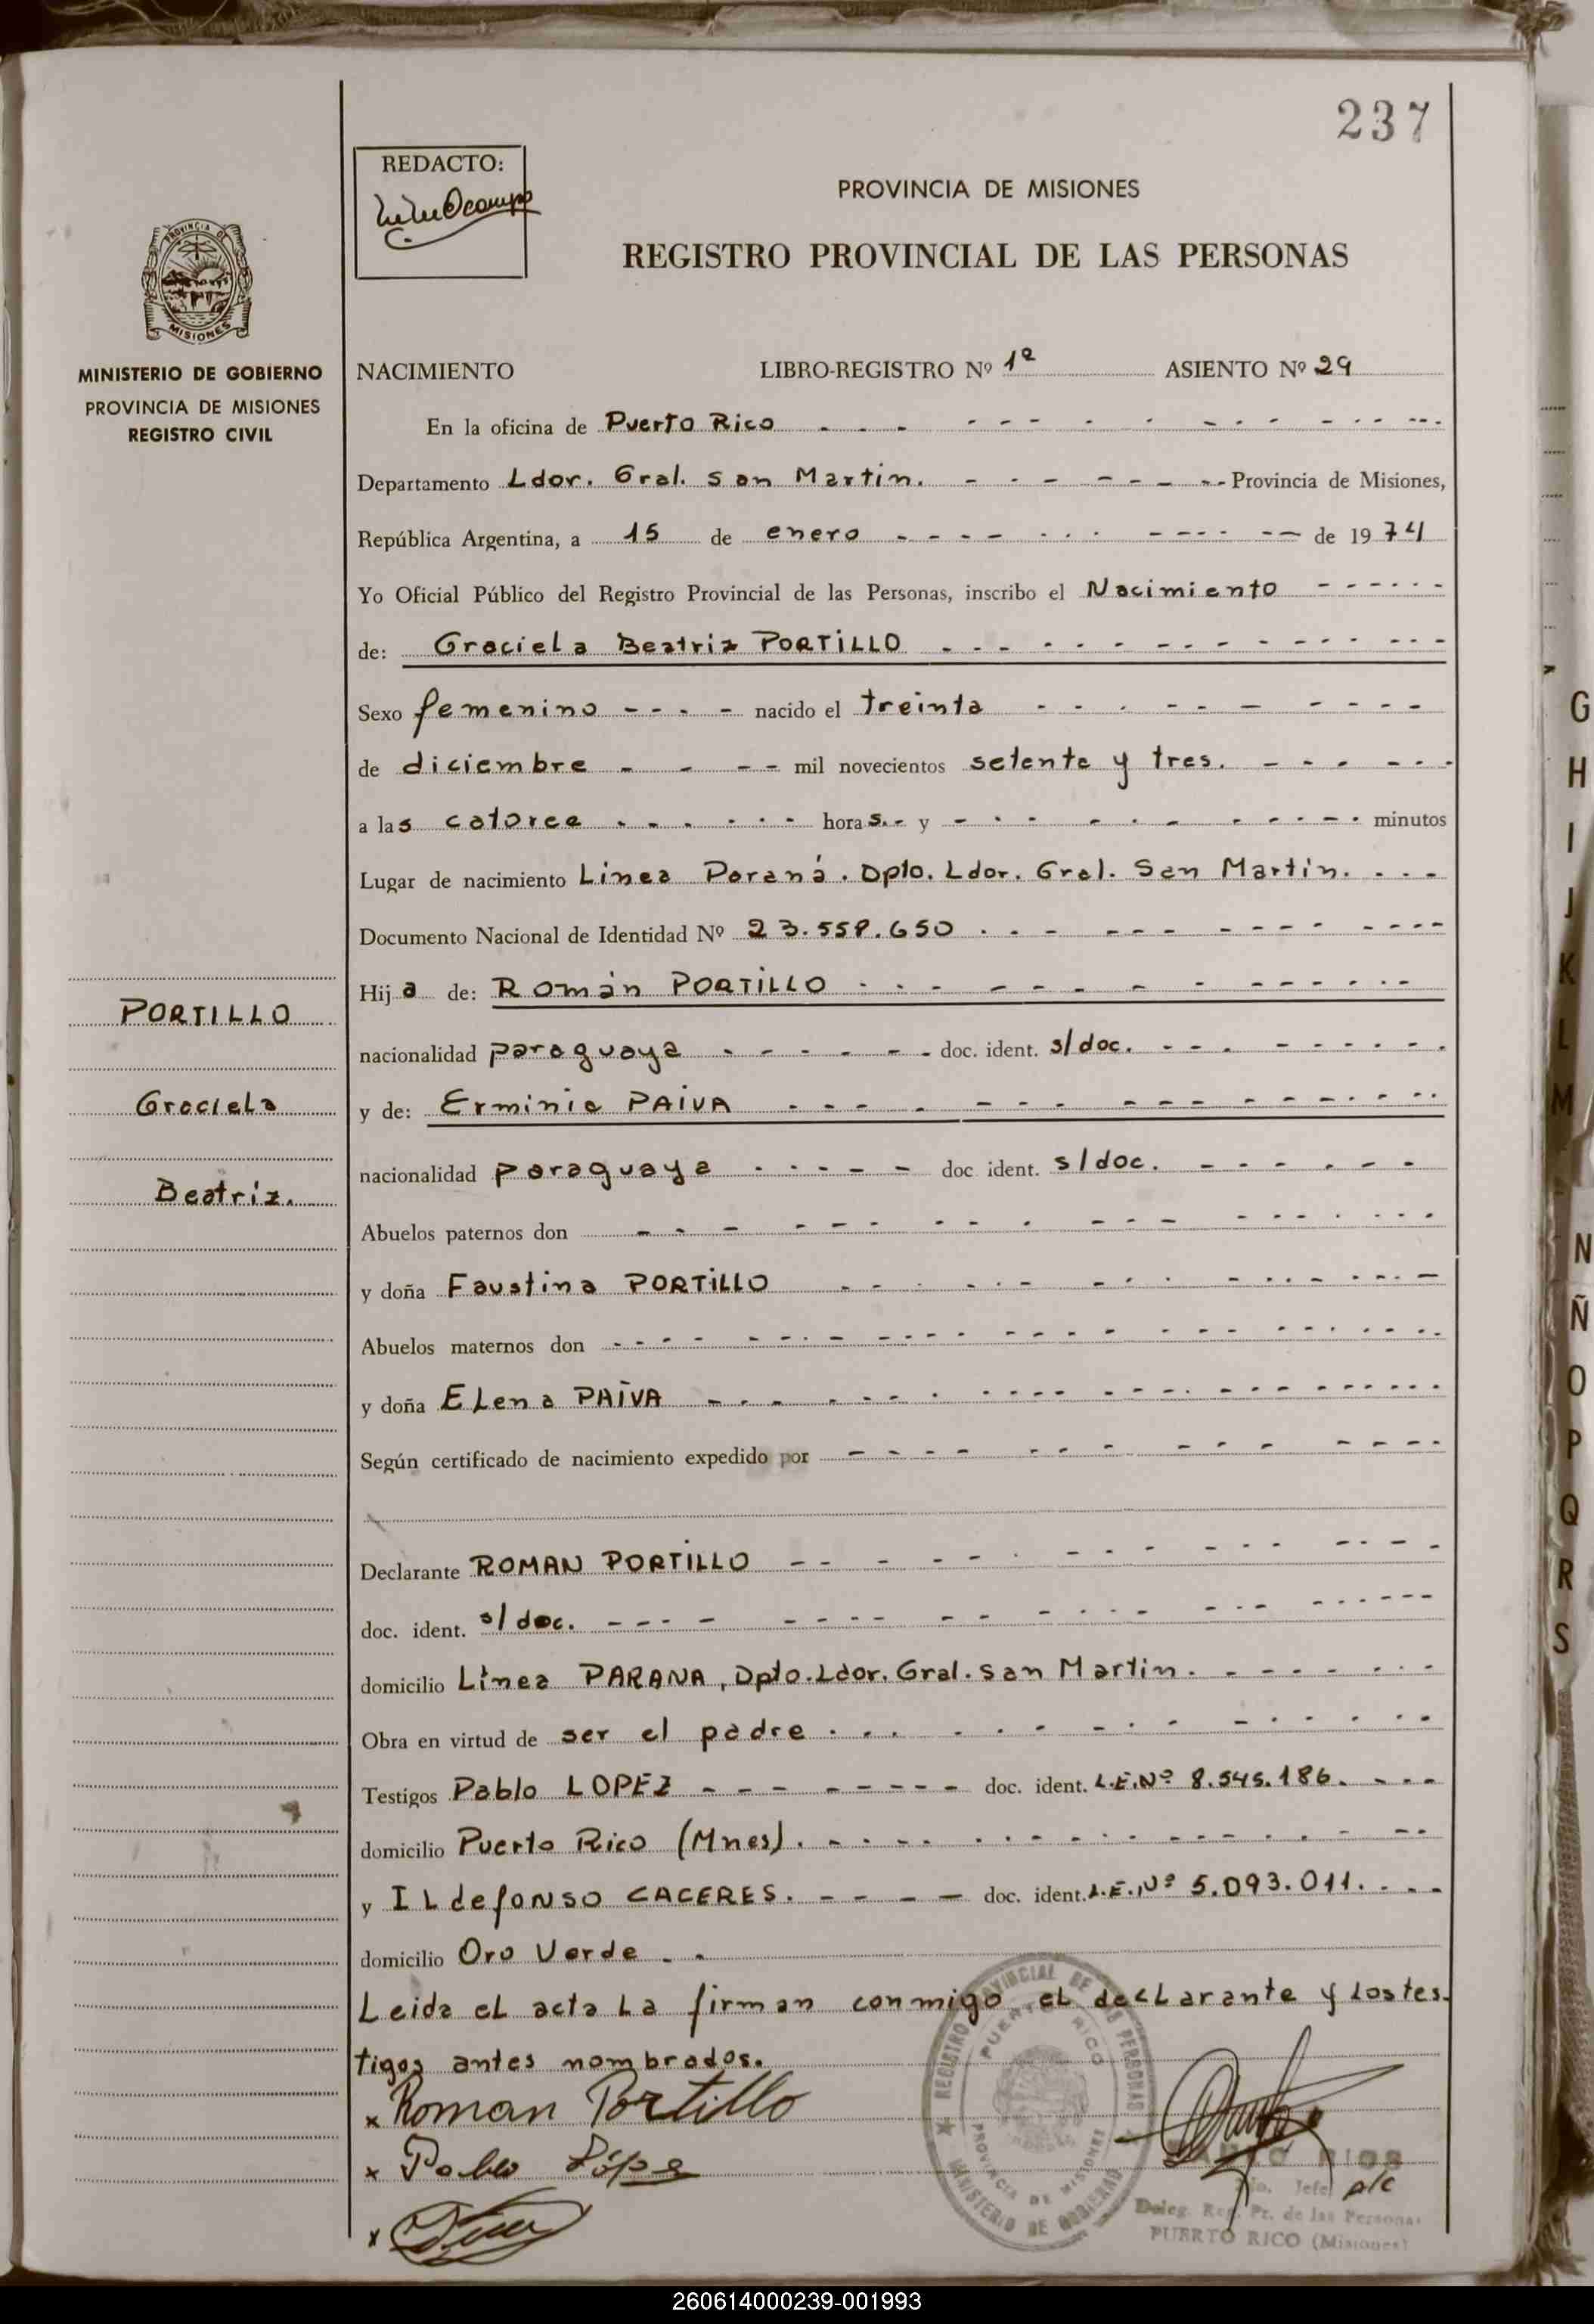 237
REDACTO:
PROVINCIA DE MISIONES
REGISTRO PROVINCIAL DE LAS PERSONAS
PROVINCIA DE
MISIONES
MINISTERIO DE GOBIERNO
PROVINCIA DE MISIONES
REGISTRO CIVIL
NACIMIENTO LIBRO-REGISTRO Nº 1º ASIENTO Nº 29
En la oficina de Puerto Rico
Departamento Ldor. Gral. San Martin. Provincia de Misiones,
República Argentina, a 15 de enero de 1974
Yo Oficial Público del Registro Provincial de las Personas, inscribo el Nacimiento
de: Graciela Beatriz PORTILLO
Sexo femenino nacido el treinta
de diciembre mil novecientos setenta y tres.
a las catorce horas.- y minutos
Lugar de nacimiento Linea Paraná. Dpto. Ldor. Gral. San Martin.
Documento Nacional de Identidad Nº 23.558.650
Hija de: Román PORTILLO
nacionalidad paraguaya doc. ident. s/doc.
y de: Erminia PAIVA
nacionalidad paraguaya doc. ident. s/doc.
Abuelos paternos don
y doña Faustina PORTILLO
Abuelos maternos don
y doña ELena PAIVA
Según certificado de nacimiento expedido por
Declarante ROMAN PORTILLO
doc. ident. s/doc.
domicilio Linea PARANA, Dpto. Ldor. Gral. San Martin.
Obra en virtud de ser el padre
Testigos Pablo LOPEZ doc. ident. L.E.Nº 8.545.186.
domicilio Puerto Rico (Mnes).
y ILdefonso CACERES. doc. ident. L.E.Nº 5.093.011.
domicilio Oro Verde
Leida el acta La firman conmigo el decLarante y Los tes-
tigos antes nombrados.
PORTILLO
Graciela
Beatriz.
x Roman Portillo
x Pablo López
x
REGISTRO PROVINCIAL DE LAS PERSONAS
PUERTO RICO
PROVINCIA DE MISIONES
MINISTERIO DE GOBIERNO
RIOS
Jefe a/c
Deleg. Reg. Pr. de las Personas
PUERTO RICO (Misiones)
G
H
I
J
K
L
M
N
Ñ
O
P
Q
R
S
260614000239-001993